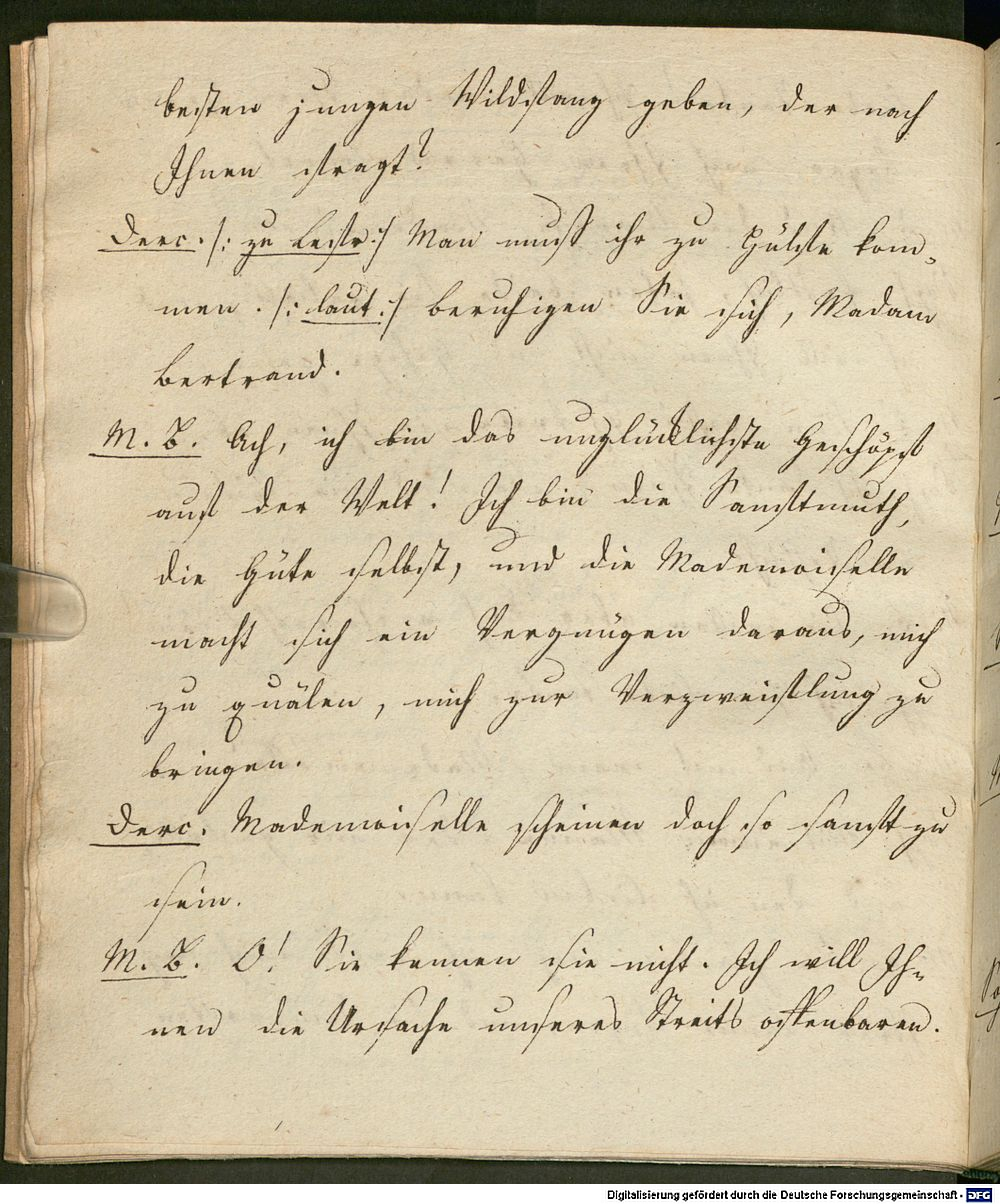 besten jungen Wildfang geben, der nach
Ihnen fragt?
Derc. /: zu Lestr. :/ Man muß ihr zu Hülfe kom-
men. /: laut :/ beruhigen Sie sich, Madam
Bertrand.
M. B. Ach, ich bin das unglücklichste Geschöpf
auf der Welt! Ich bin die Sanftmuth,
die Güte selbst, und die Mademoiselle
macht sich ein Vergnügen daraus, mich
zu quälen, mich zur Verzweiflung zu
bringen.
Derc. Mademoiselle scheinen doch so sanft zu
sein.
M. B. O! Sie kennen sie nicht. Ich will Ih-
nen die Ursache unseres Streits offenbaren.
Digitalisierung gefördert durch die Deutsche Forschungsgemeinschaft - DFG